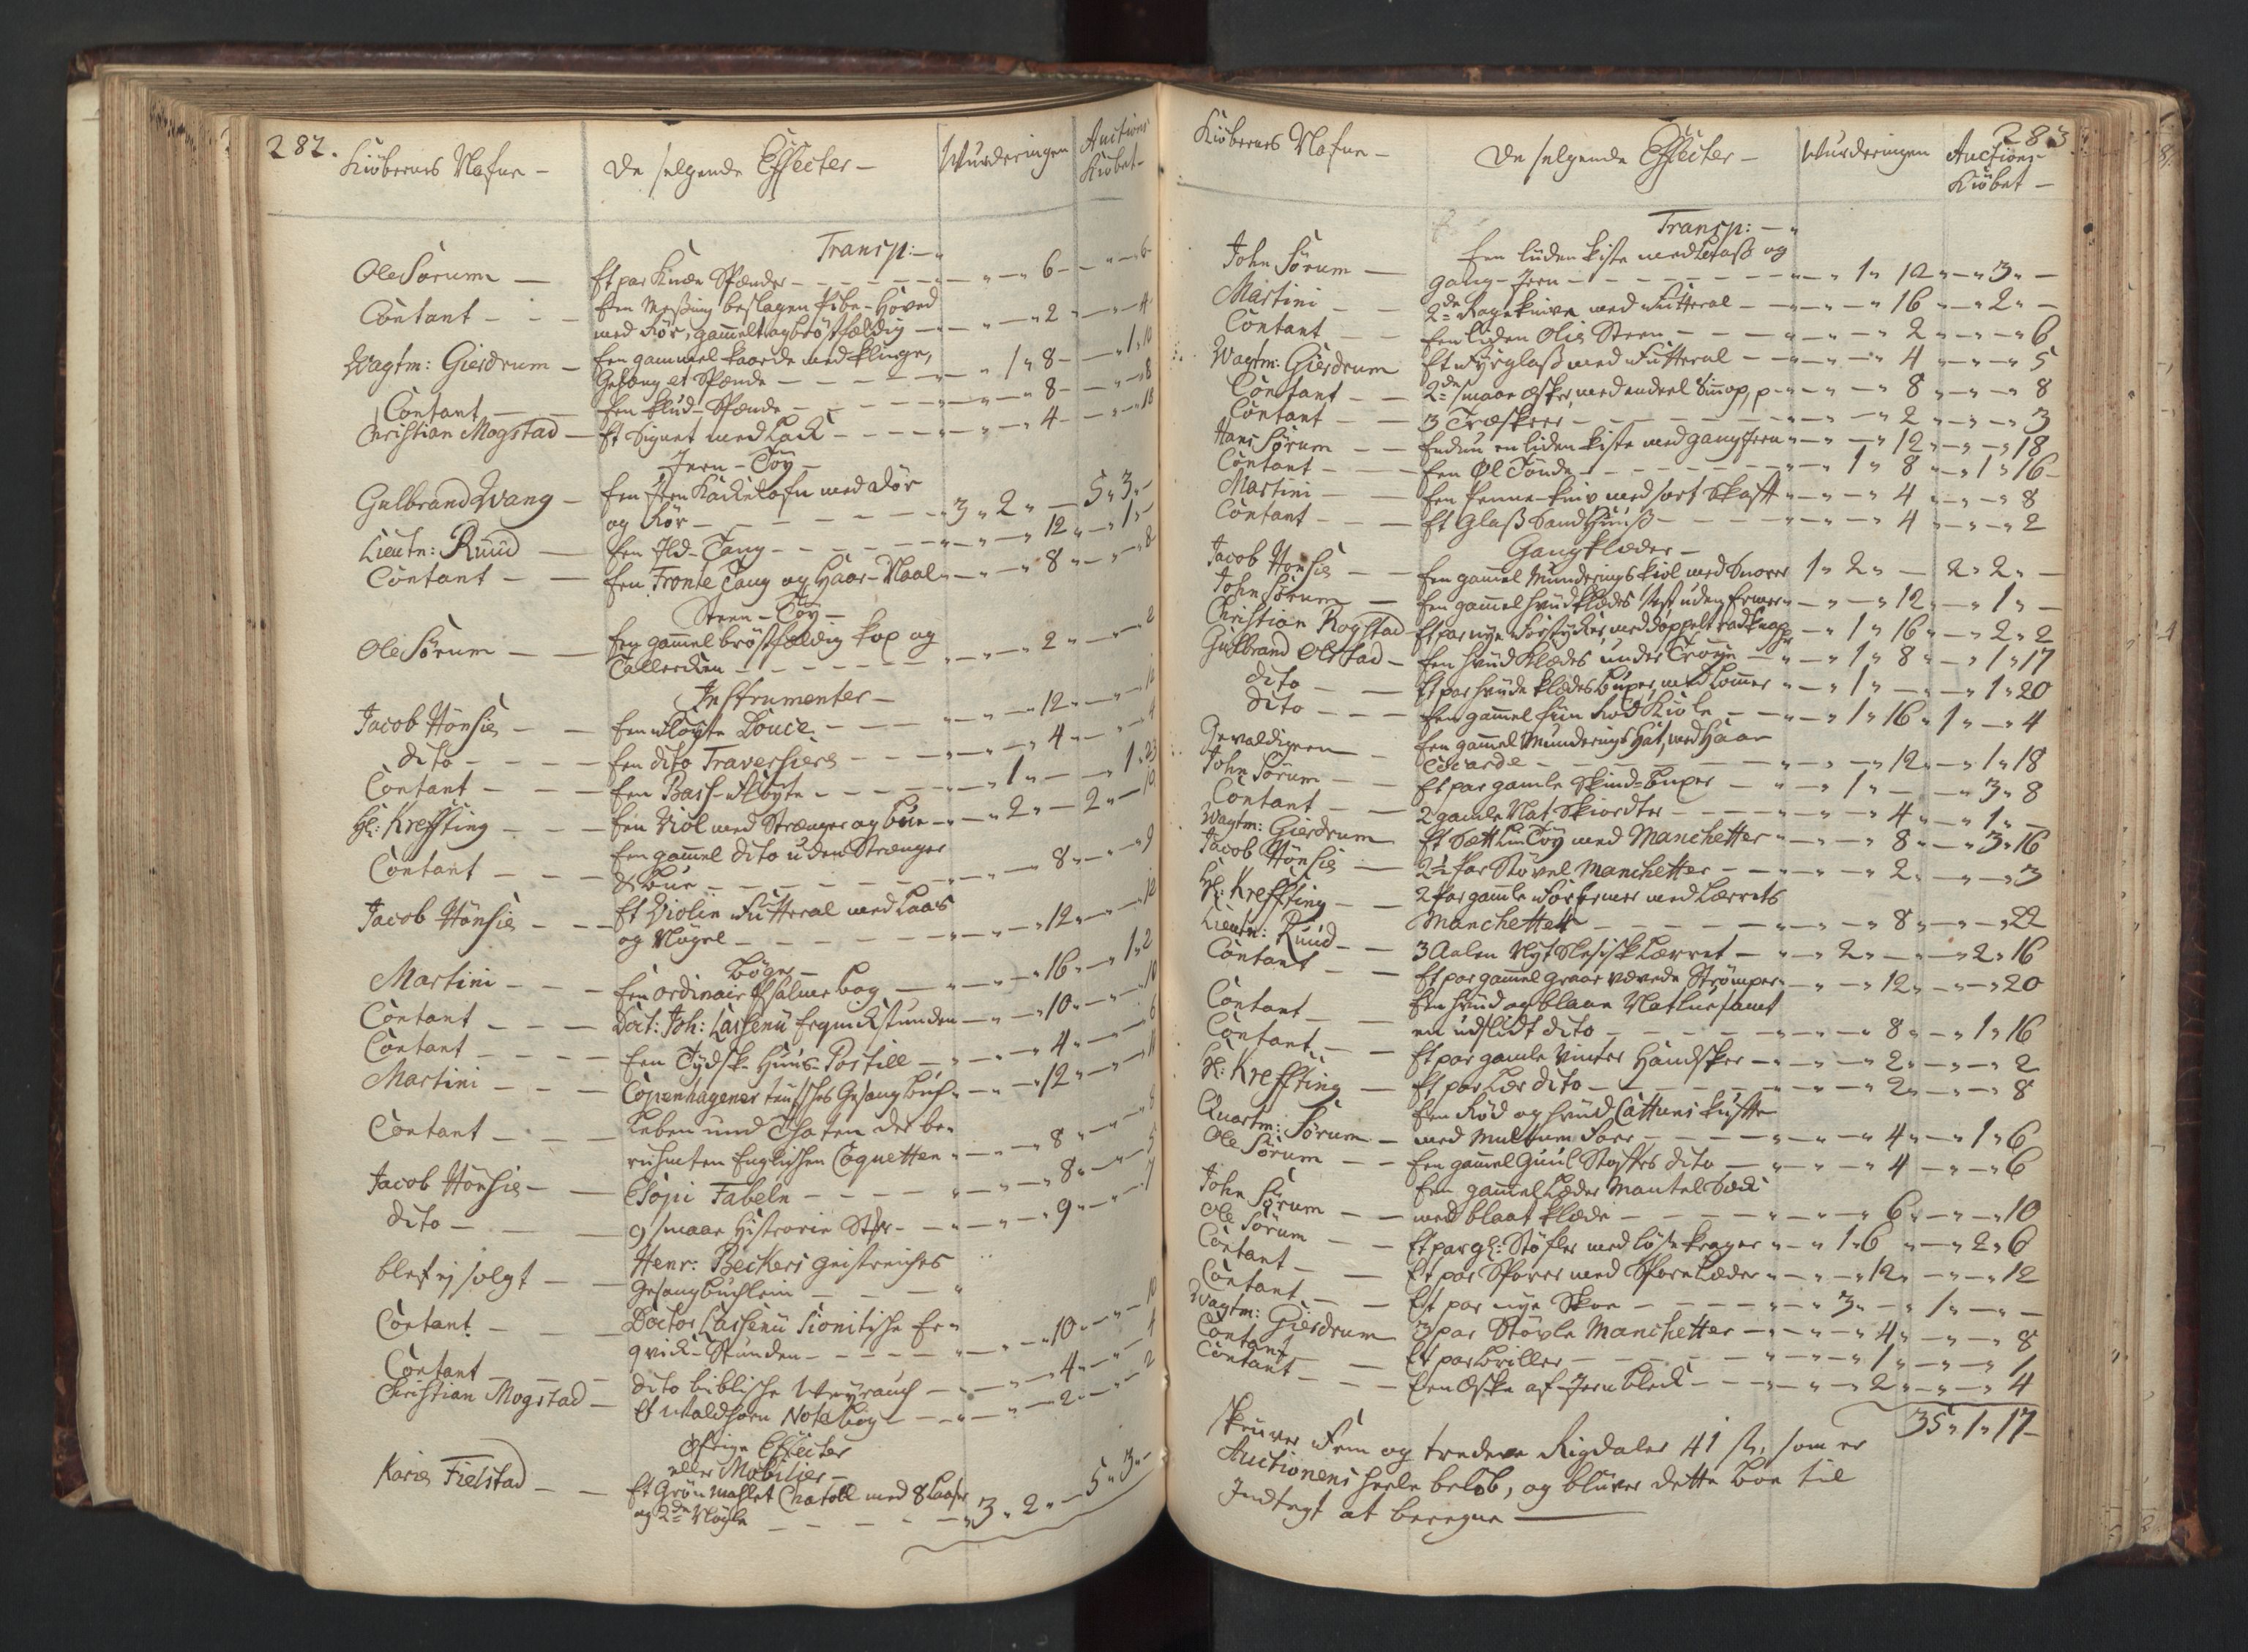 282.
Kiöbernes Nafne — De selgende Effecter — Wurderingen Auctions
Kiöbet —
Transp: — "
Ole Sørum — Et par Knæe Spænder — " — " 6 — " — " 6
Contant — Een Messing beslagen Pibe-Hoved
med Rör, gammelt og bröstfældig — " — " 2 " — " 4
Wagtm: Gierdrum — Een gammel Kaarde med Klinge,
Gehæng et Spænde — " 1 " 8 — " 1 " 10
Contant — Een Klud-Spænde — " — " 8 — " — " 8
Christian Mogstad — Et Signet med Lack — " — " 4 — " — " 18
Jern-Töy —
Gulbrand Wang — Een Jern Kackelofn med Dör
og Rör — 3 " 2 " — 5 " 3 " —
Lieutn: Ruud — Een Ild-Tang — " — " 12 " — " 1 " —
Contant — Een Fronte Tang og Haar-Naal " — " 8 " — " 8
Steen-Töy —
Ole Sørum — Een gammel bröstfældig Kop og
Tallercken — " — " 2 " — " 2
Instrumenter —
Jacob Hönsie — Een Flöyte Douce — " — " 12 — " — " 12
dito — Een dito Traversiere — " — " 4 " — " 4
Contant — Een Bass-Flöyte — " 1 " — " 1 " 23
Hl: Kreffting — Een Viol med Strænger og Bue — " 2 " — 2 " — 10
Contant — Een gammel dito uden Strænger
& Bue — " — " 8 " — " 9
Jacob Hönsie — Et Violin Futteral med Laas
og Nögel — " — " 12 " — " 12
Böger —
Martini — Een ordinair Psalme bog — " — " 16 " — " 1 " 2
Contant — Doct: Joh: Lassenii Erquickstunden — " — " 10 " — " 10
Contant — Een Tydsk-Huus-Postill — " — " 4 " — " 6
Martini — Copenhagener teutsches Gesang Buch " — " 12 " — " 11
Contant — Leben und Thaten der be-
rühmten Englischen Coquetten " — " 8 " — " 8
Jacob Hönsie — Esopi Fabeln — " — " 8 " — " 5
dito — 9 smaae Historie Stkr — " — " 9 " — " 7
blef ej solgt — Henr: Beckers geistreiches
Gesangbüchlein — "
Contant — Doctor Lassenii Sionitische Er-
qvick-Stunden — " — " 10 " — " 10
Contant — dito biblische Weyrauch — " — " 4 " — " 4
Christian Mogstad — Et Waldhorn Note bog — " — " 2 " — " 2
Öfrige Effecter
eller Mobilier —
Karie Fielstad — Et Grön mahlet Chatoll med 8 Laaser
og 2de Nögle — " 3 " 2 " — 5 " 3 " —
283
Kiöbernes Nafne — De selgende Effecter — Wurderingen Auctions-
Kiöbet —
Transp: — "
John Sörum — Een liden Kiste med Laass og
Gang-Jern — " — 1 " 12 " — " 3 " —
Martini — 2de Rageknive med Futteral — " — " 16 " — " 2 " —
Contant — Een liden Olie Steen — " — " 2 " — " 6
Wagtm: Gierdrum Et Fyrglass med Futteral — " — " 4 " — " 5
Contant — 2de smaae Æsker, med endeel Sinop, p " — " 8 " — " 8
Contant — 3 Træskeer — " — " 2 " — " 3
Hans Sørum — Endnu en liden Kiste med Gang Jern " — " 12 " — " 18
Contant — Een Øl Tönde — " — 1 " 8 " — 1 " 16 —
Martini — Een Penne-Kniv med sort Skafft " — " 4 " — " 8
Contant — Et Glass Sand Huus — " — " 4 " — " 2
Gangklæder —
Jacob Hönsie — Een gammel Munderings kiol med Snorer 1 " 2 " — 2 " 2 " —
John Sörum — Een gammel hvid klædes Vest uden Ermer " — " 12 " — 1 " —
Christian Rogstad Et par nye Forstycker, med doppelt rad Knapper — 1 " 16 " — 2 " 2
Gulbrand Olstad — Een hvid Klædes under Tröye — " — 1 " 8 " — 1 " 17
dito — Et par hvide klædes Buxer, med Lommer " — 1 " — " — 1 " 20
dito — Een gammel fiin Rød Kiole — " — 1 " 16 " 1 " — 4
Gevaldigeren — Een gammel Munderings Hat, med Haar
Cocarde — " — " 12 " — 1 " 18
John Sørum — Et par gamle Skind-Buxer — " — 1 " — " — 3 " 8
Contant — 2 gamle Nat-Skiordter — " — " 4 " — 1 " —
Wagtm: Gierdrum Et Sætt Lin Töy med Manchetter " — " 8 " — " 3 " 16
Jacob Hönsie — 2½ Par Stövel Manchetter — " — " 2 " — " 3
Hl: Kreffting — 2 Par gamle Forermer med Lærrets
Manchetter — " — " 8 " — " 22
Lieutn: Ruud — 3 Aalen Nyt Slesisk Lærret — " — 2 " — " — 2 " 16
Contant — Et par gammel graae vævede Strömper " — " 12 " — " 20
Contant — Een hvid og blaae Nathue samt
en udslidt dito — " — " 8 " — 1 " 16
Contant — Et par gamle Vinter Handsker — " — " 2 " — " 2
Hl: Kreffting — Et par Lær dito — " — " 2 " — " 8
Een Rød og hvid Cattuns Kuffte
Quartm: Sörum — med Multum Foer — " — " 4 " — 1 " 6
Ole Sörum — Een gammel Guul Stoffes dito — " — " 4 — " — " 6
John Sörum — Een gammel Læder Mantel Sæck
med blaat Klæde — " — " 6 " — " 10
Ole Sörum — Et par gl: Støfler med löse Krager " — " 1 " 6 " — 2 " 6
Contant — Et par Sporer med Spore Læder " — " 12 " — " 12
Contant — Et par nye Skoe — " — " 3 " — " 1 " — " —
Wagtm: Gierdrum 3 par Stövle Manchetter — " — " 4 " — " 8
Contant — Et par Briller — " — " 1 " — " 1
Contant — Een Æske af Jern bleck — " — " 2 " — " 4
35 " 1 " 17 —
Skriver Fem og tredeve Rigdaler 41 s, som er
Auctionens heele belöb, og bliver dette Boe til
Indtegt at beregne —